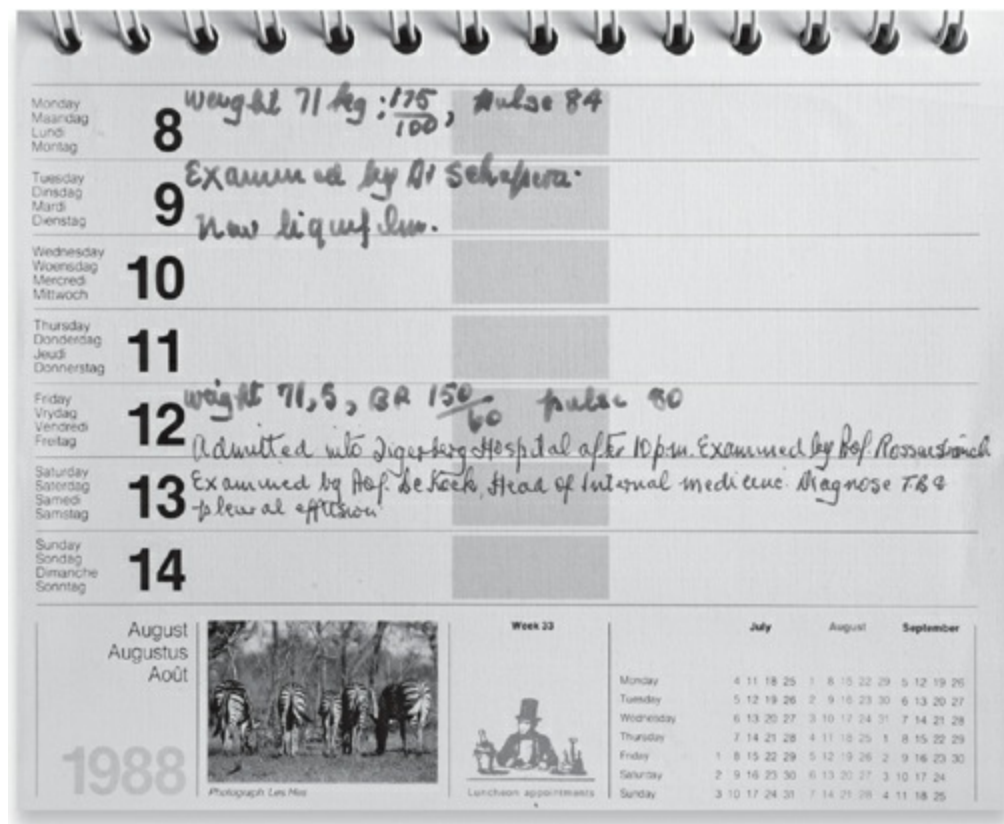 Monday
Maandag
Lundi
Montag
8
weight 71 kg : 175/100, pulse 84
Tuesday
Dinsdag
Mardi
Dienstag
9
Examined by Dr Schapera.
New liquifilm.
Wednesday
Woensdag
Mercredi
Mittwoch
10
Thursday
Donderdag
Jeudi
Donnerstag
11
Friday
Vrydag
Vendredi
Freitag
12
weight 71,5, BP 150/60 pulse 80
Admitted into Tigerberg Hospital after 10 pm. Examined by Prof.
Saturday
Saterdag
Samedi
Samstag
13
Examined by Prof. De Kock, Head of Internal medicine. Diagnose TB &
pleural effusion
Sunday
Sondag
Dimanche
Sonntag
14
August
Augustus
Août
1988
Photograph Les Hes
Week 33
Luncheon appointments
July August September
Monday 4 11 18 25 1 8 15 22 29 5 12 19 26
Tuesday 5 12 19 26 2 9 16 23 30 6 13 20 27
Wednesday 6 13 20 27 3 10 17 24 31 7 14 21 28
Thursday 7 14 21 28 4 11 18 25 1 8 15 22 29
Friday 1 8 15 22 29 5 12 19 26 2 9 16 23 30
Saturday 2 9 16 23 30 6 13 20 27 3 10 17 24
Sunday 3 10 17 24 31 7 14 21 28 4 11 18 25